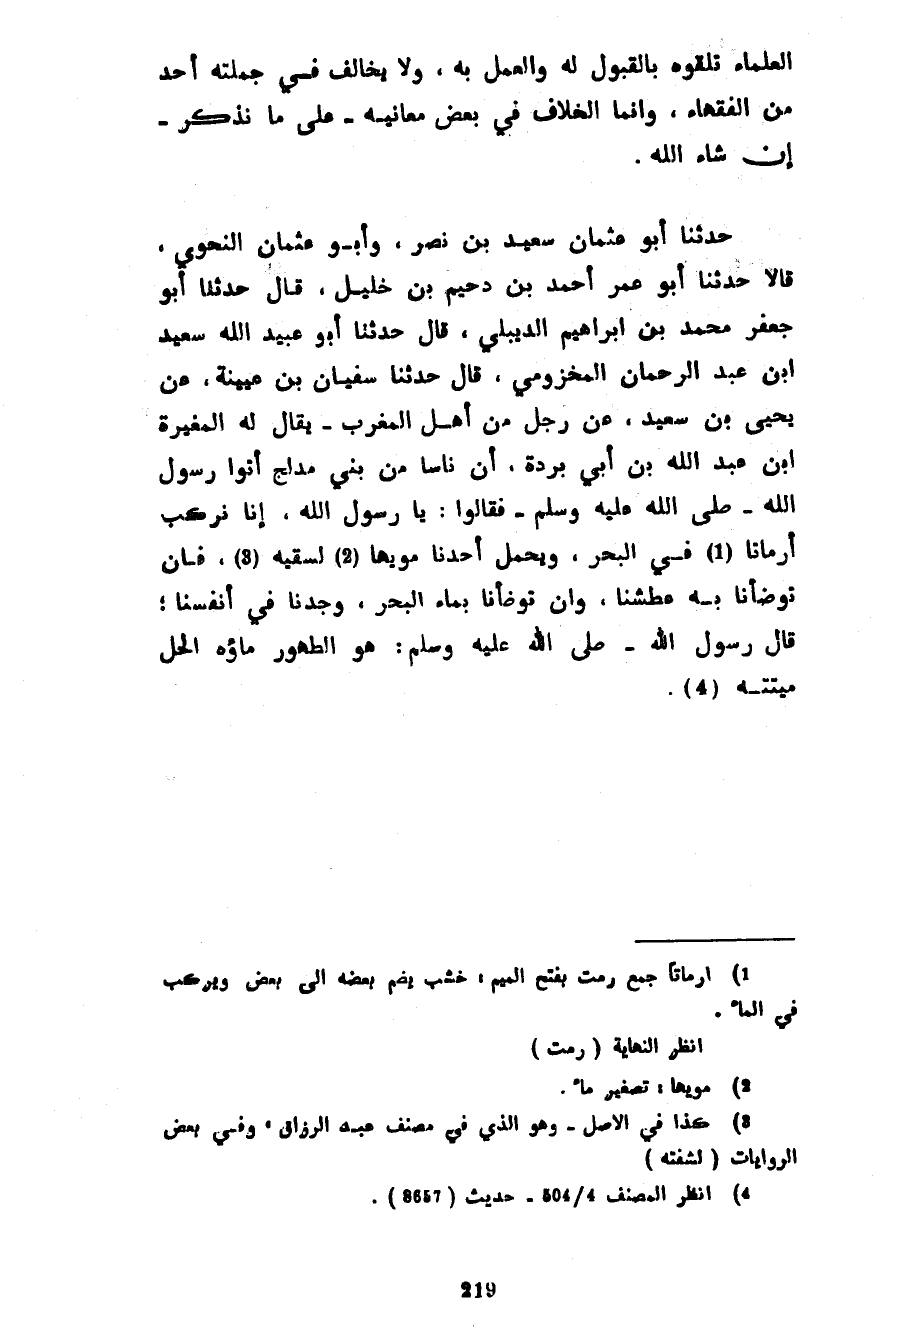 العلماء تلقوه بالقبول له والعمل به ، ولا يخالف فـي جملته أحد
من الفقهاء ، وانما الخلاف في بعض معانيـه ـ على ما نذكر ـ
إن شاء الله .
حدثنا أبو عثمان سعيـد بن نصر ، وأبـو عثمان النحوي ،
قالا حدثنا أبو عمر أحمد بن دحيم بن خليـل ، قـال حدثنا أبو
جعفر محمد بن ابراهيم الديبلي ، قال حدثنا أبو عبيد الله سعيد
ابن عبد الرحمان المخزومي ، قال حدثنا سفيـان بن عيينة ، عن
يحيى بن سعيد ، عن رجل من أهـل المغرب ـ يقال له المغيرة
ابن عبد الله بن أبي بردة ، أن ناسا من بني مدلج أتوا رسول
الله ـ صلى الله عليه وسلم ـ فقالوا : يا رسول الله ، إنا نركب
أرماثا (1) فـي البحر ، ويحمل أحدنا مويها (2) لسقيه (3) ، فـان
توضأنا بـه عطشنا ، وان توضأنا بماء البحر ، وجدنا في أنفسنا ؛
قال رسول الله ـ صلى الله عليه وسلم : هو الطهور ماؤه الحل
ميتتـه (4) .
1) ارماثاً جمع رمث بفتح الميم : خشب يضم بعضه الى بعض ويركب
في الماء .
انظر النهاية ( رمث )
2) مويها : تصغير ماء .
3) كذا في الاصل ـ وهو الذي في مصنف عبد الرزاق ، وفـي بعض
الروايات ( لشفته )
4) انظر المصنف 504/4 ـ حديث ( 8657 ) .
219